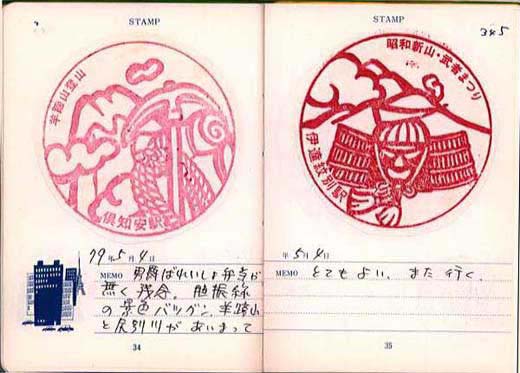 STAMP
羊蹄山登山
倶知安駅
79年5月4日
MEMO 男爵ばれいしょ弁当が
無く残念。胆振線
の景色バツグン。羊蹄山
と尻別川があいまって
34
STAMP
345
昭和新山・武者まつり
伊達紋別駅
年5月4日
MEMO とてもよい、また行く。
35